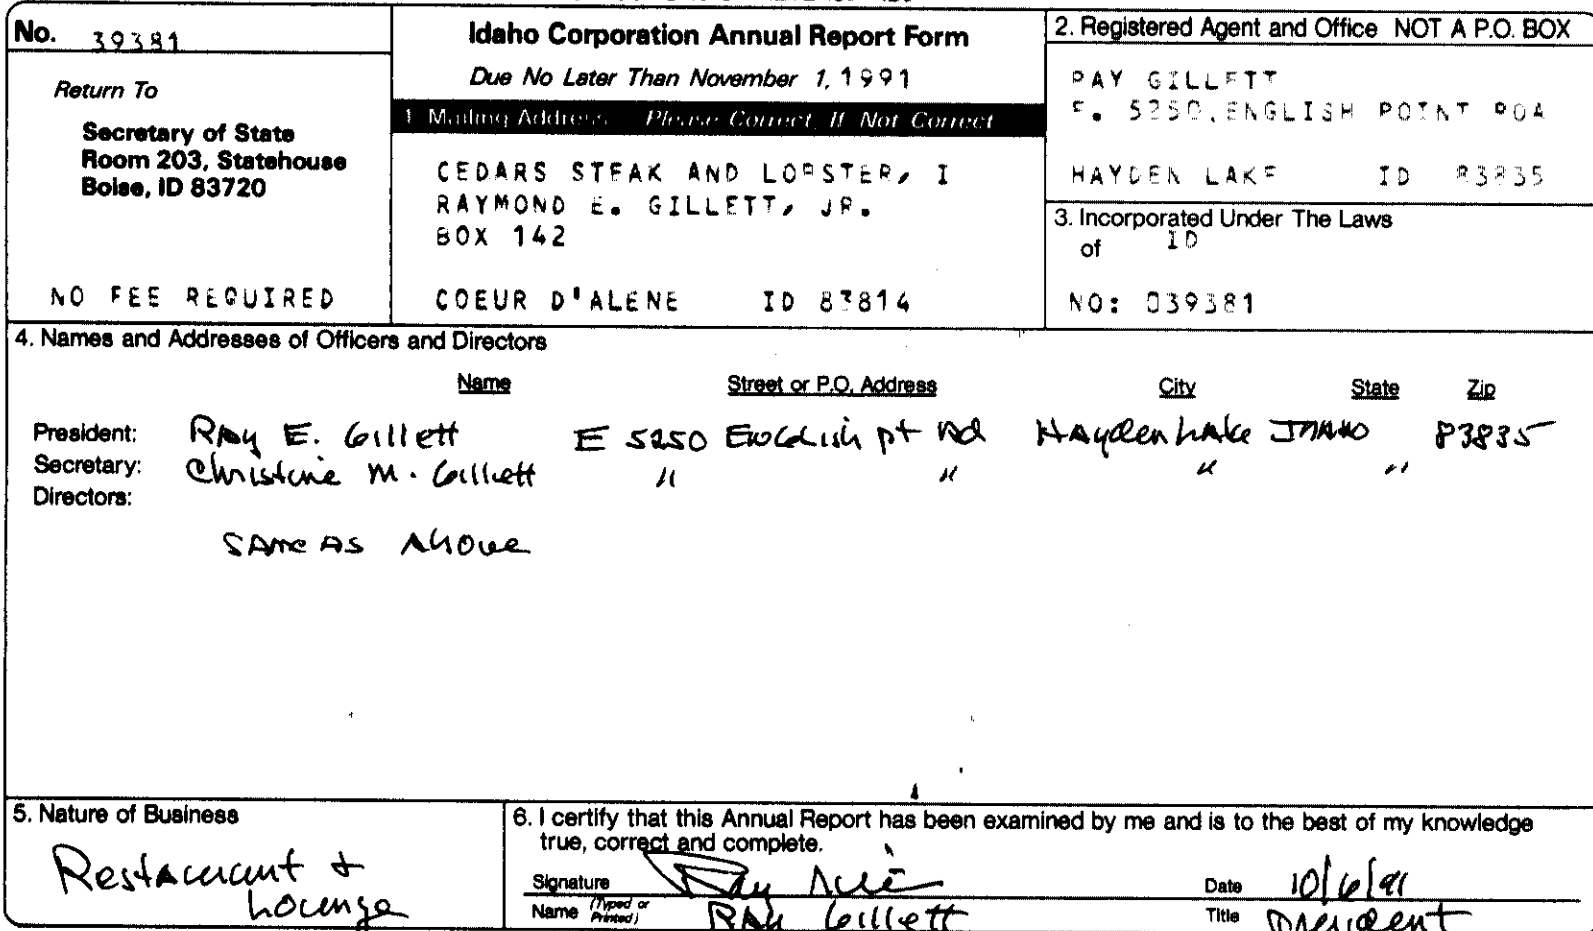 No. 39381
Return To
Secretary of State
Room 203, Statehouse
Boise, ID 83720
NO FEE REQUIRED
Idaho Corporation Annual Report Form
Due No Later Than November 1, 1991
1. Mailing Address Please Correct, If Not Correct
CEDARS STEAK AND LOBSTER, I
RAYMOND E. GILLETT, JR.
BOX 142
COEUR D'ALENE ID 83814
2. Registered Agent and Office NOT A P.O. BOX
RAY GILLETT
E. 5250 ENGLISH POINT ROA
HAYDEN LAKE ID 83835
3. Incorporated Under The Laws
of ID
NO: 039381
4. Names and Addresses of Officers and Directors
Name Street or P.O. Address City State Zip
President: Ray E. Gillett E 5250 English pt Rd Hayden Lake IDAHO 83835
Secretary: Christine M. Gillett " " " "
Directors:
SAME AS Above
5. Nature of Business
Restaurant +
Lounge
6. I certify that this Annual Report has been examined by me and is to the best of my knowledge
true, correct and complete.
Signature Date 10/6/91
Name (Typed or Printed) RAY Gillett Title President